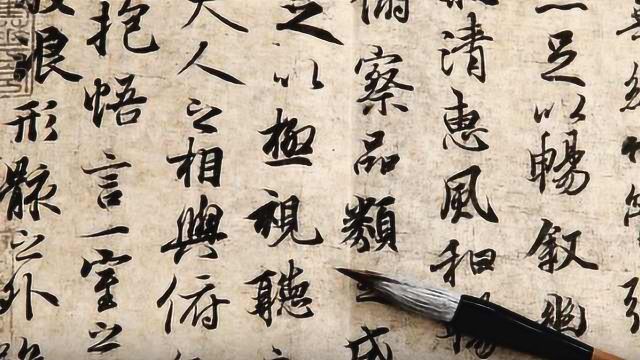 足以暢叙幽
清惠風和暢
俯察品類之盛
足以極視聽之
夫人之相與俯
抱悟言一室之
放浪形骸之外